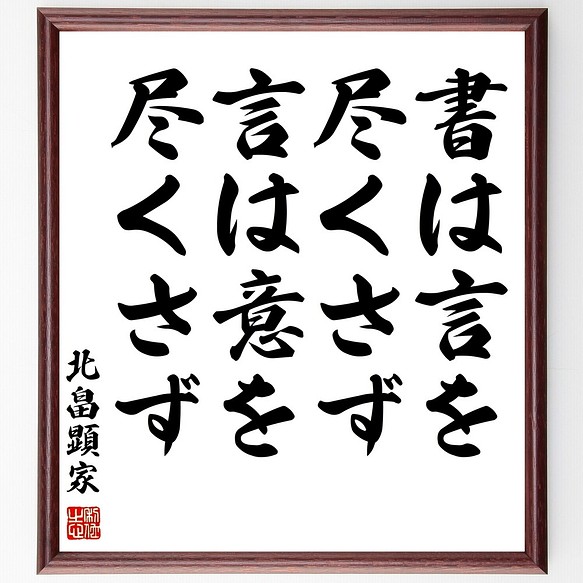 書は言を
尽くさず
言は意を
尽くさず
北畠顕家